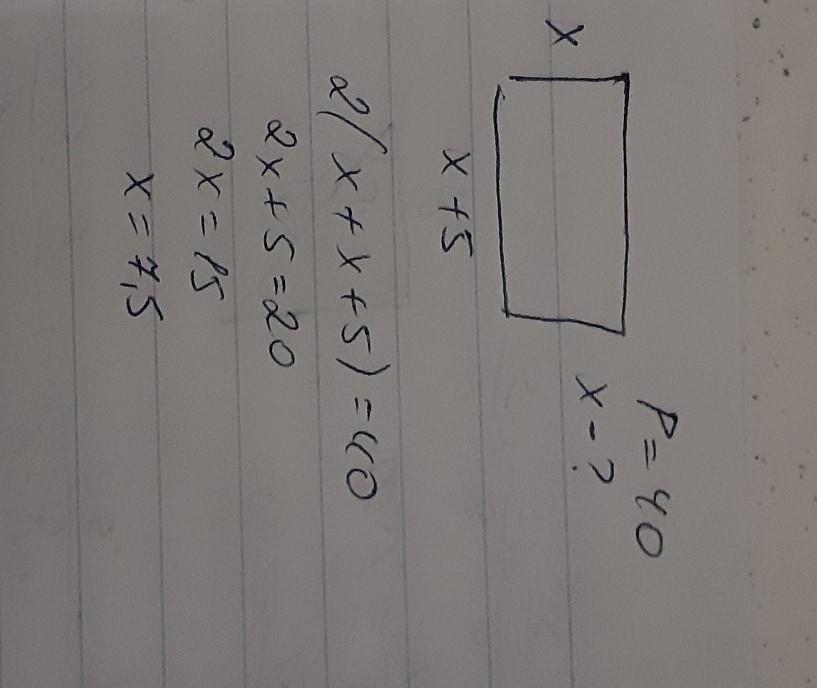 x
x+5
P=40
x-?
2(x+x+5)=40
2x+5=20
2x=15
x=7,5